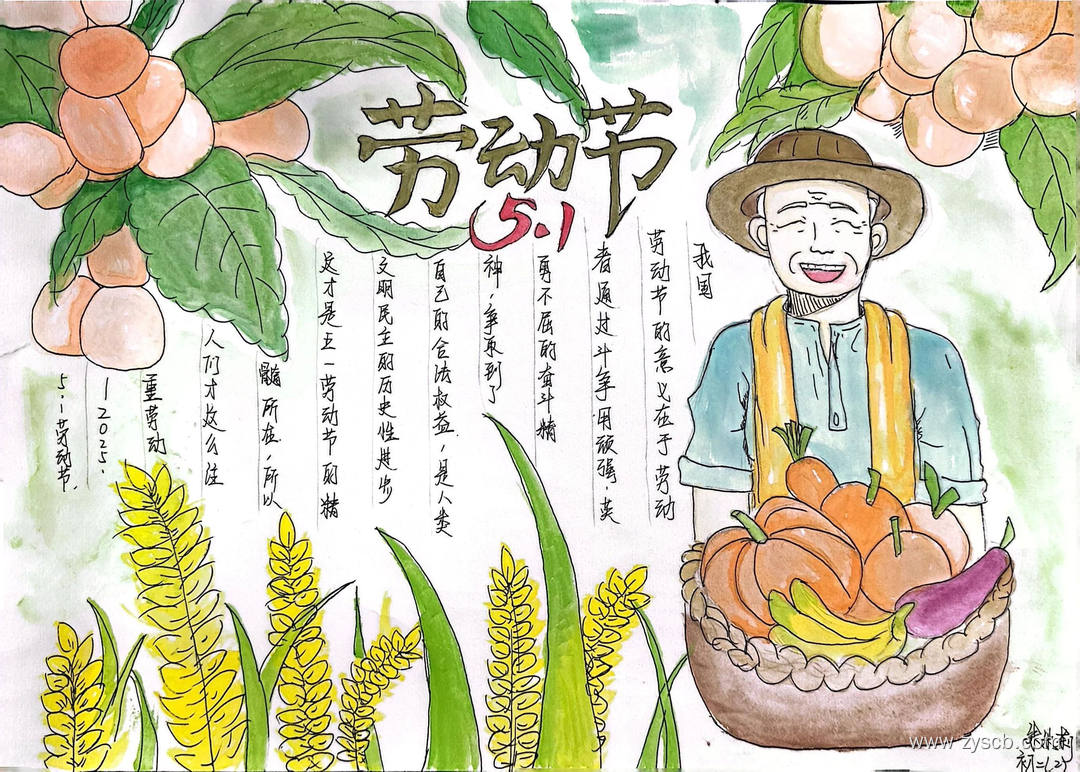 劳动节
5.1
我国
劳动节的意义在于劳动
者通过斗争用顽强、英
勇不屈的奋斗精
神,争取到了
自己的合法权益,是人类
文明民主的历史性进步
这才是五一劳动节的精
髓所在,所以
人们才这么注
重劳动
—2025.
5.1劳动节.
www.zyscb.com
初二(.25)